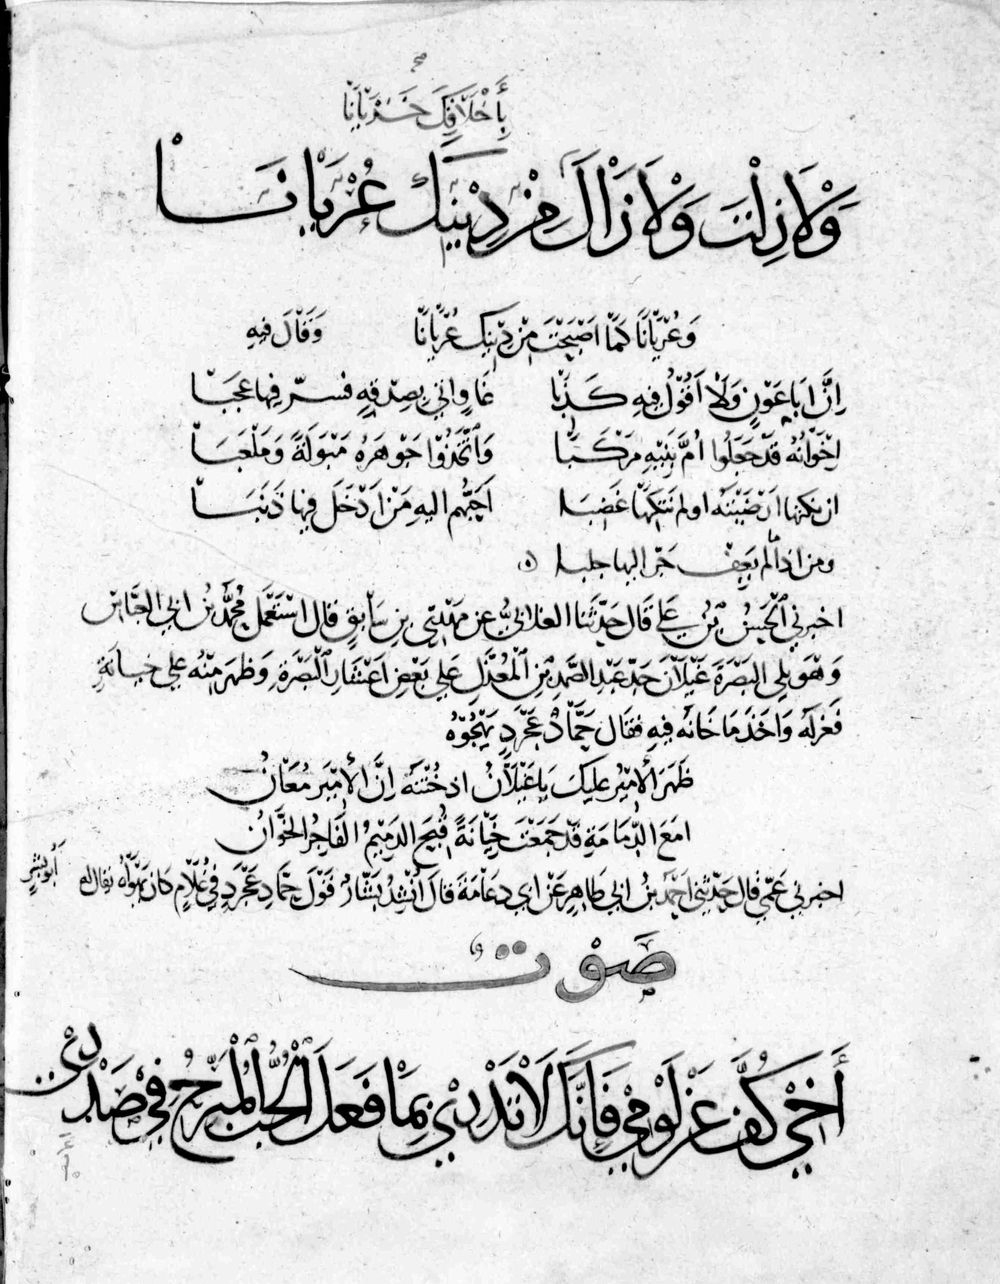 صح
بِأَخْلَاقِكَ خَزْيَانَا
وَلَا زِلْتَ وَلَا زَالَ مِنْ دِينِكَ عُرْيَانَا
وَعُرْيَانًا كَمَا اَصْبَحْتَ مِنْ دِينِكَ عُرْيَانَا وَقَالَ فِيهِ
اِنَّ اَبَا عَوْنٍ وَلَا اَقُوْلُ فِيهِ كَذِبَا غَاوٍ وانى بصدقه فسر فيها عجبا
اِخْوَانُهُ قَدْ جَعَلُوا اُمَّ بَنِيهِ مَرْكَبَا وَاتَّخَذُوا جَوْهَرَهُ مَبْوَلَةً وَمَلْعَبَا
ان نكتها ارضيته او لم تنكها غَضِبَا احبهم اليه مَنْ اَدْخَلَ فيها ذَنَبَا
ومن اذا لم يعف جر اليها جلبا ه
اخبرني الحسن بن علي قَال حَدَّثَنا الغلابي عن مَهْدِي بن سَابِقٍ قال اسْتَعْمَل مُحَمَّد بن ابي العَبَّاسْ
وَهْوَ يلى البَصْرَة غَيْلَانَ جَدّ عبد الصَّمَد بْنِ الْمُعَذَّل عَلى بَعْض اَعْشَار الْبَصْرَةِ وَظَهَرَ مِنْهُ على خيانَةٍ
فَعَزَلَهُ وَاَخَذَ مَا خَانَهُ فِيهِ فقَال حَمَّادُ عَجْرَدٍ يَهْجُوهُ
ظَهَرَ الْاَمِيْرُ عَلَيْكَ يَا غَيْلَانُ اذ خُنْتَهُ اِنَّ الْاَمِيْرَ مُعَانُ
امَعَ الدَّمَامَةِ قَدْ جَمَعْتَ خِيَانَةً قَبُحَ الدَّمِيْمُ الْفَاجِرُ الْخَوَّانُ
اخبرني عَمّي قَال حَدَّثَنِي احمَد بنُ ابى طَاهِرٍ عَنْ ابى دعَامَة قال اَنْشَدَ بَشَّارٌ قَوْلَ حمَّاد عَجْرَدٍ في غُلَامٍ كان يَهْوَاهُ يقال له
أَبُو بِشْرٍ
صَوْت
أَخِي كُفَّ عَنْ لَوْمِي فَإِنَّكَ لَا تَدْرِي بِمَا فَعَلَ الْحُبُّ الْمُبَرِّحُ فِي صَدْرِي